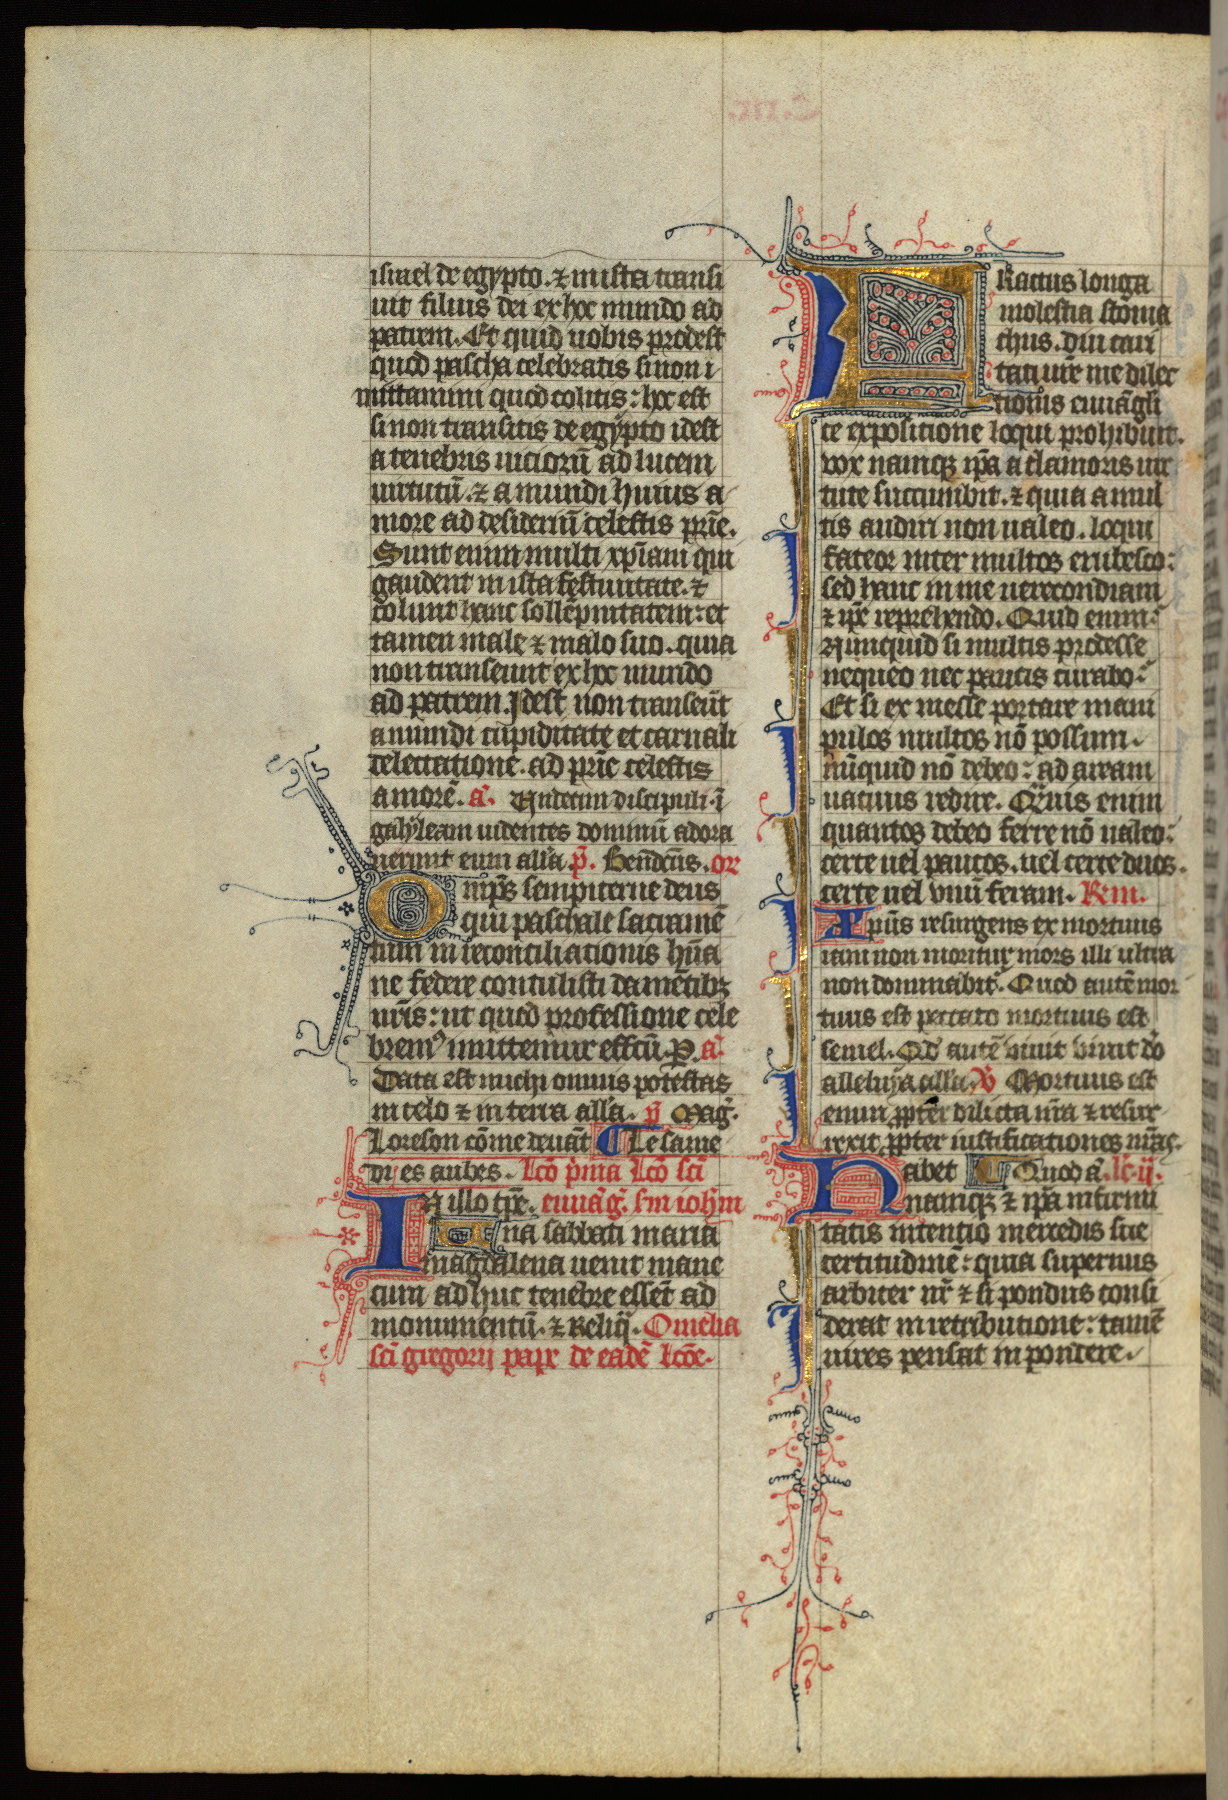 israel de egypto. ⁊ in ista transi
uit filius dei ex hoc mundo ad
patrem. Et quid uobis prodest
quod pascha celebratis si non i
mittamini quod colitis: hoc est
si non transitis de egypto idest
a tenebris uiciorū ad lucem
uirtutū. ⁊ a mundi huius a
more ad desideriū celestis pr̄ie.
Sunt enim multi xp̄iani qui
gaudent in ista festiuitate. ⁊
colunt hanc sollēpnitatem: et
tamen male ⁊ malo suo. quia
non transeunt ex hoc mundo
ad patrem. Idest non transeūt
a mundi cupiditate et carnali
delectatione. ad pr̄ie celestis
amorē. a̅. Undecim discipuli. ī
galyleam uidentes dominū adora
uerunt eum all'a p̄. Bend̄cūs. or
Omp̄s sempiterne deus
qui paschale sacramē
tum in reconciliationis hūa
ne federe contulisti da mētibꝫ
nr̄is: ut quod professione cele
bremꝰ imittemur eff̄cū. P. a̅.
Data est michi omnis potestas
in celo ⁊ in terra all'a. p̄ Mag̅.
Loreson cōme deuāt ¶ Le same
di es aubes. Lc̄o p̄ma Lc̄o sc̄i
IN illo tp̄r. euuāg̅. sm̄ ioh̄m
Una sabbati maria
magdalena uenit mane
cum adhuc tenebre essēt ad
monumentū. ⁊ Reliq̄. Omelia
sc̄i gregorij pape de eadē Lc̄oe.
FRactus longa
molestia stoma
chus. diu cari
tati ur̄e me dilec
tionis euuāgli
ce expositione loqui prohibuit.
vox namqꝫ ip̄a a clamoris uir
tute succumbit. ⁊ quia a mul
tis audiri non ualeo. loqui
fateor inter multos erubesco:
sed hanc in me uerecondiam
⁊ ip̄e reprehendo. Quid enim?
Nunquid si multis prodesse
nequeo nec paucis curabo?
Et si ex messe portare mani
pulos multos nō possum.
nūquid nō debeo: ad aream
uacuus redire. Qͣuis enim
quantos debeo ferre nō ualeo:
certe uel paucos. uel certe duos.
certe uel vnū feram. Rm̄.
Xp̄us resurgens ex mortuis
iam non moritur mors illi ultra
non dominabit̄. Quod autē mor
tuus est peccato mortuus est
semel. Qd̄ autē viuit viuit dō
alleluya all'a. V̄ Mortuus est
enim ꝓpter dilicta nr̄a ⁊ resur
rexit ꝓpter iustificationes nr̄as.
Habet ¶ Quod a̅. lc̄. ij.
namqꝫ ⁊ ip̄a infirmi
tatis intentio mercedis sue
certitudinē: quia supernus
arbiter nr̄ ⁊ si pondus consi
derat in retributione: tamē
uires pensat in pondere.